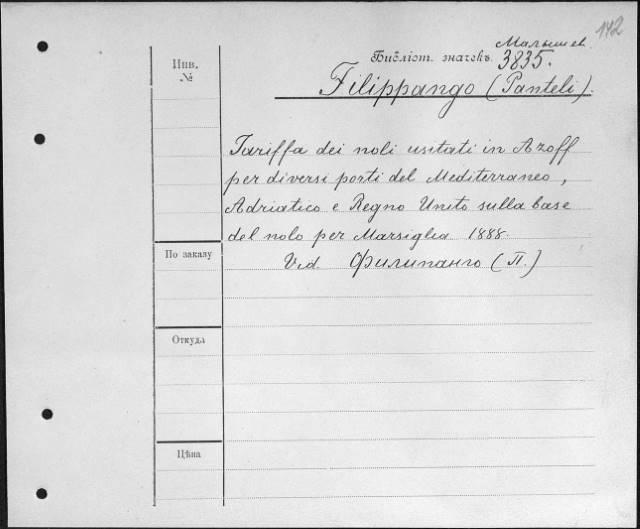 142
Малышев.
Инв. №
Библіот. значекъ 3835.
Filippango (Panteli).
Tariffa dei noli usitati in Azoff
per diversi porti del Mediterraneo,
Adriatico e Regno Unito sulla base
del nolo per Marsiglia 1888.
Vid. Филипанго (П.)
По заказу
Откуда
Цѣна